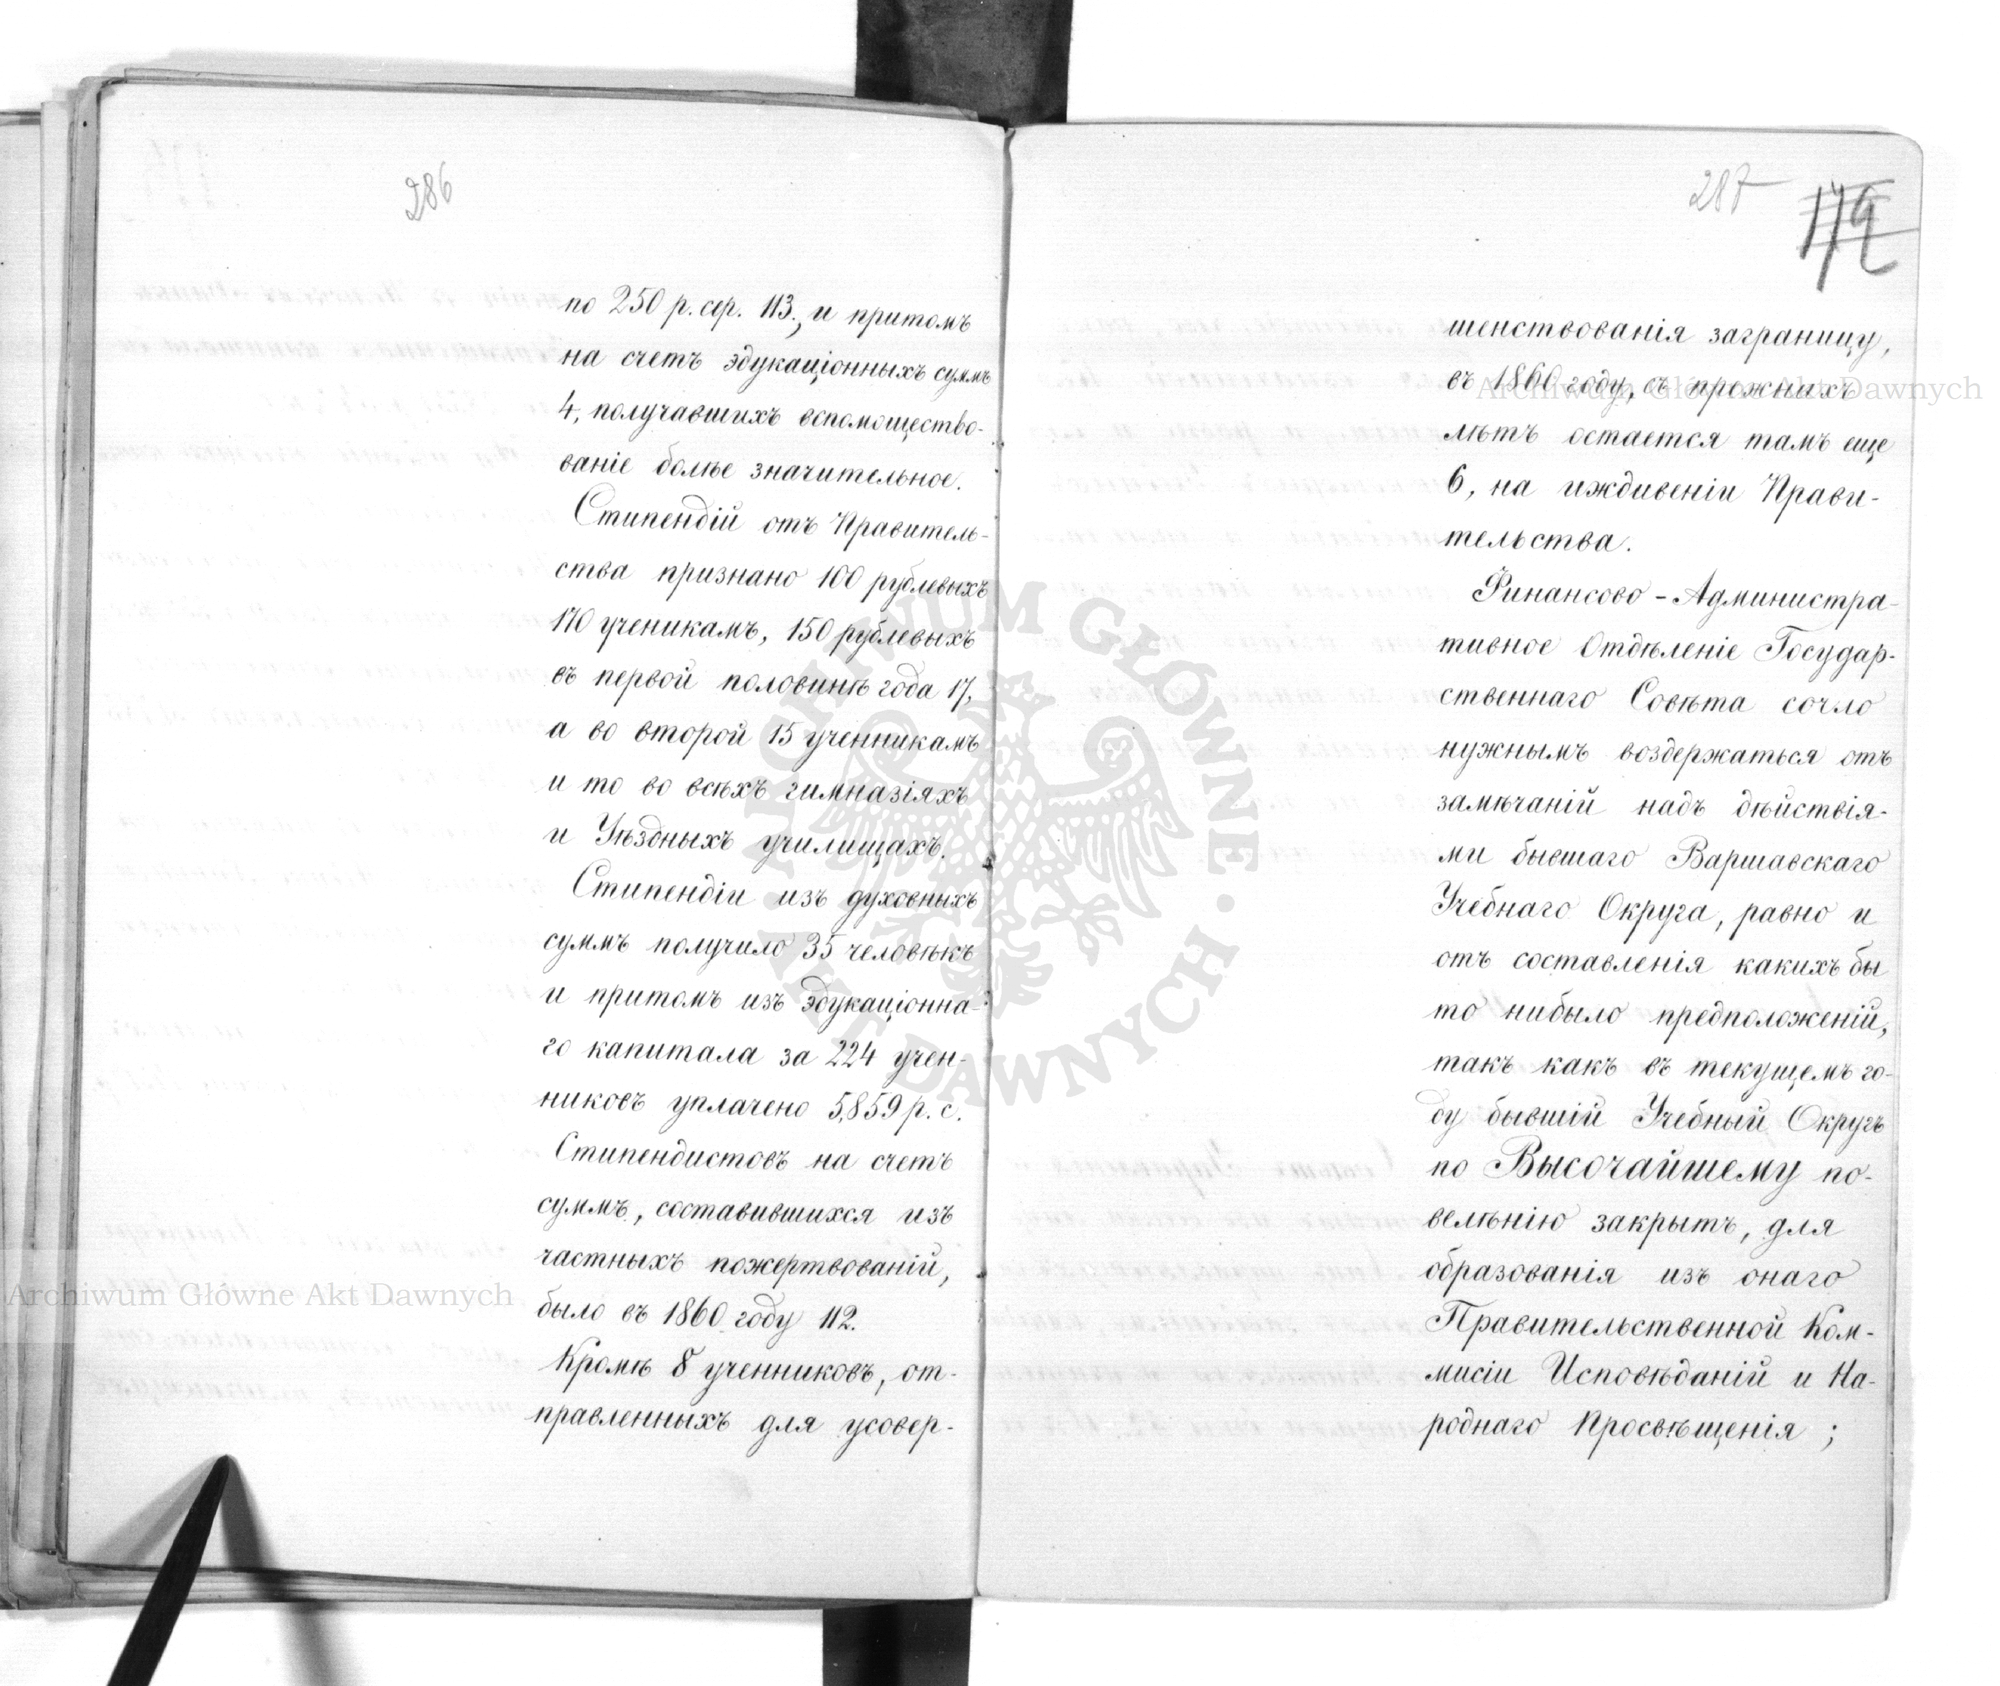 286
по 250 р. сер. 113., и притомъ
на счетъ эдукаціонныхъ суммъ
4, получавшихъ вспомощество-
ваніе болѣе значительное.
Стипендій отъ Правитель-
ства признано 100 рублевыхъ
170 ученикамъ, 150 рублевыхъ
въ первой половинѣ года 17,
а во второй 15 ученникамъ
и то во всѣхъ гимназіяхъ
и Уѣздныхъ училищахъ.
Стипендіи изъ духовныхъ
суммъ получило 35 человѣкъ
и притомъ изъ эдукаціонна-
го капитала за 224 учен-
никовъ уплачено 5,859 р. с.
Стипендистовъ на счетъ
суммъ, составившихся изъ
частныхъ пожертвованій,
было въ 1860 году 112.
Кромѣ 8 ученниковъ, от-
правленныхъ для усовер-
287
179
шенствованія заграницу,
въ 1860 году, съ прежнихъ
лѣтъ остается тамъ еще
6, на иждивеніи Прави-
тельства.
Финансово-Администра-
тивное Отдѣленіе Государ-
ственнаго Совѣта сочло
нужнымъ воздержаться отъ
замѣчаній надъ дѣйствія-
ми бывшаго Варшавскаго
Учебнаго Округа, равно и
отъ составленія какихъ бы
то нибыло предположеній,
такъ какъ въ текущемъ го-
ду бывшій Учебный Округъ
по Высочайшему по-
велѣнію закрытъ, для
образованія изъ онаго
Правительственной Ком-
мисіи Исповѣданій и На-
роднаго Просвѣщенія;
Archiwum Główne Akt Dawnych
Archiwum Główne Akt Dawnych
ARCHIWUM GŁÓWNE · AKT DAWNYCH ·